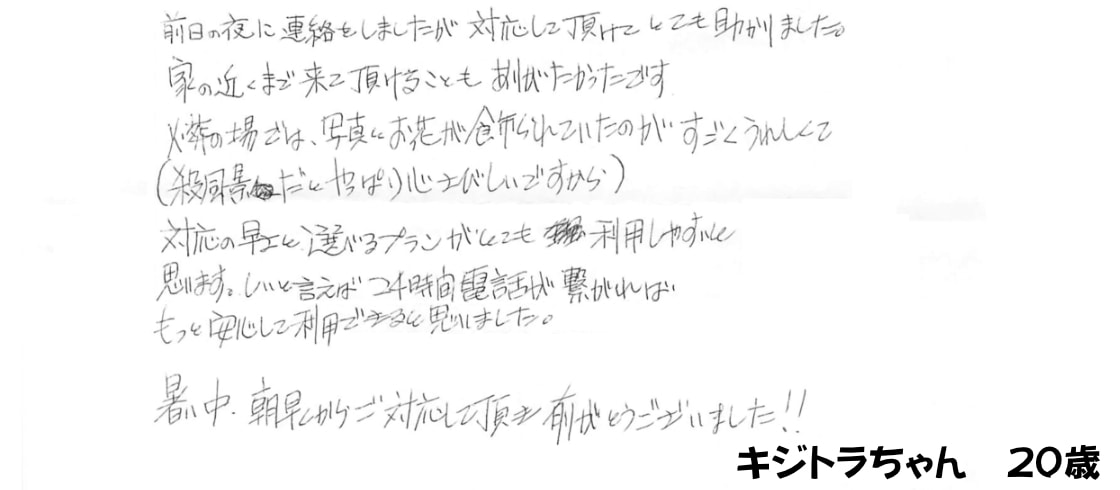 前日の夜に連絡をしましたが対応して頂けてとても助かりました。
家の近くまで来て頂けることもありがたかったです
火葬の場では、写真にお花が飾られていたのがすごくうれしくて
(殺風景だとやっぱり心さびしいですから)
対応の早さと選べるプランがとても利用しやすいと
思います。しいと言えば24時間電話が繋がれば
もっと安心して利用できると思いました。
暑い中、朝早くからご対応して頂き有がとうございました!!
キジトラちゃん 20歳